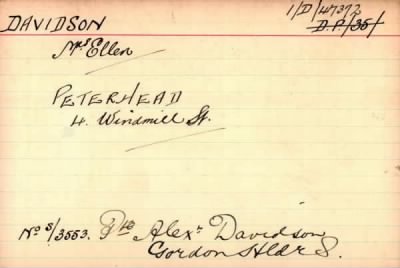 DAVIDSON 1/D/47392
D.P./35/
Mrs Ellen
PETERHEAD
4. Windmill St.
No S/3553. Pte Alexr Davidson
Gordon Hldrs.